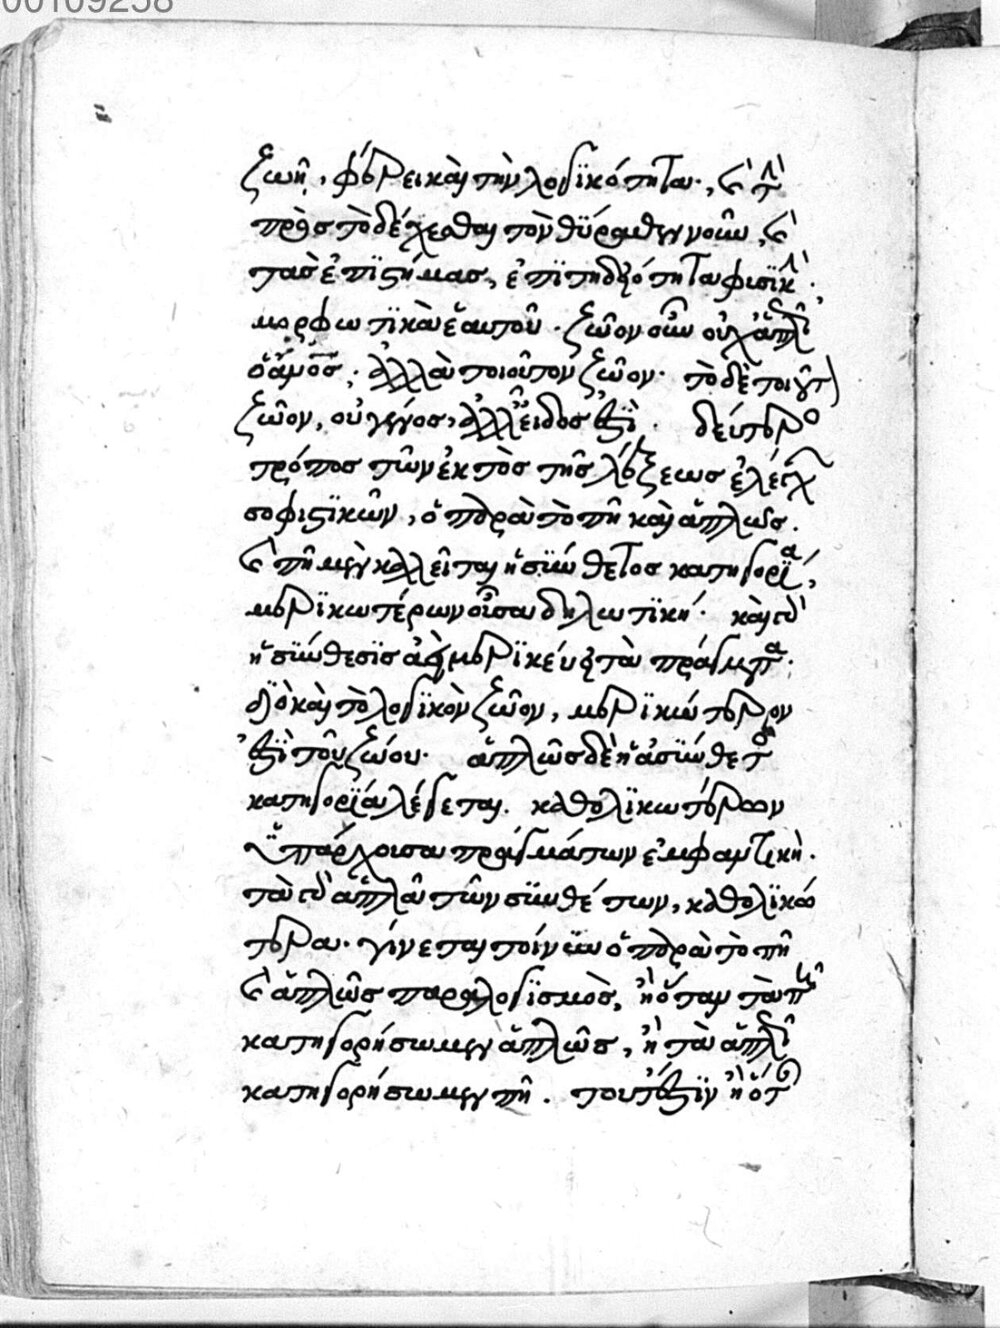 00109238
ζωὴ, φέρει καὶ τὴν λογϊκότητα, καὶ τὴν
πρὸς τὸ δέχεσθαι τὸν θύραθεν νοῦν, καὶ
τὰς ἐπϊστήμας, ἐπϊτηδειότητα φυσϊκὴν.
μορφωτϊκὰ ἑαυτοῦ. ζῶον οὖν οὐχ ἁπλῶς
ἀλλὰ ποιοῦτον ζῶον. τὸ δὲ τοιοῦτον
ζῶον, οὐ γένος, ἀλλ' εἶδος ἐστὶ. δεύτερος
τρόπος τῶν ἐκτὸς τῆς λέξεως ἐλέγχων
σοφιστϊκῶν, ὁ παρὰ τὸ πῆ καὶ ἁπλῶς.
καὶ πῆ μὲν καλεῖται ἡ σύνθετος κατηγορία,
μερϊκωτέρων οὖσα δηλωτϊκή. καὶ γὰρ
ἡ σύνθεσϊς ἀεὶ μερϊκεύει τὰ πράγματα.
διὸ καὶ τὸ λογϊκὸν ζῶον, μερϊκώτερον
ἐστὶ τοῦ ζώου. ἁπλῶς δὲ ἡ ἀσύνθετος
κατηγορία λέγεται. καθολϊκωτέρων
ὑπάρχουσα πραγμάτων ἐμφαντικὴ.
τὰ γὰρ ἁπλᾶ τῶν συνθέτων, καθολϊκώ
τερα. γίνεται τοίνυν ὁ παρὰ τὸ πῆ
καὶ ἁπλῶς παραλογϊσμὸς, ἢ ὅταν τὰ πῆ
κατηγορήσωμεν ἁπλῶς, ἢ τὰ ἁπλῶς
κατηγορήσωμεν πῆ. τουτέστϊν ἢ ὅταν